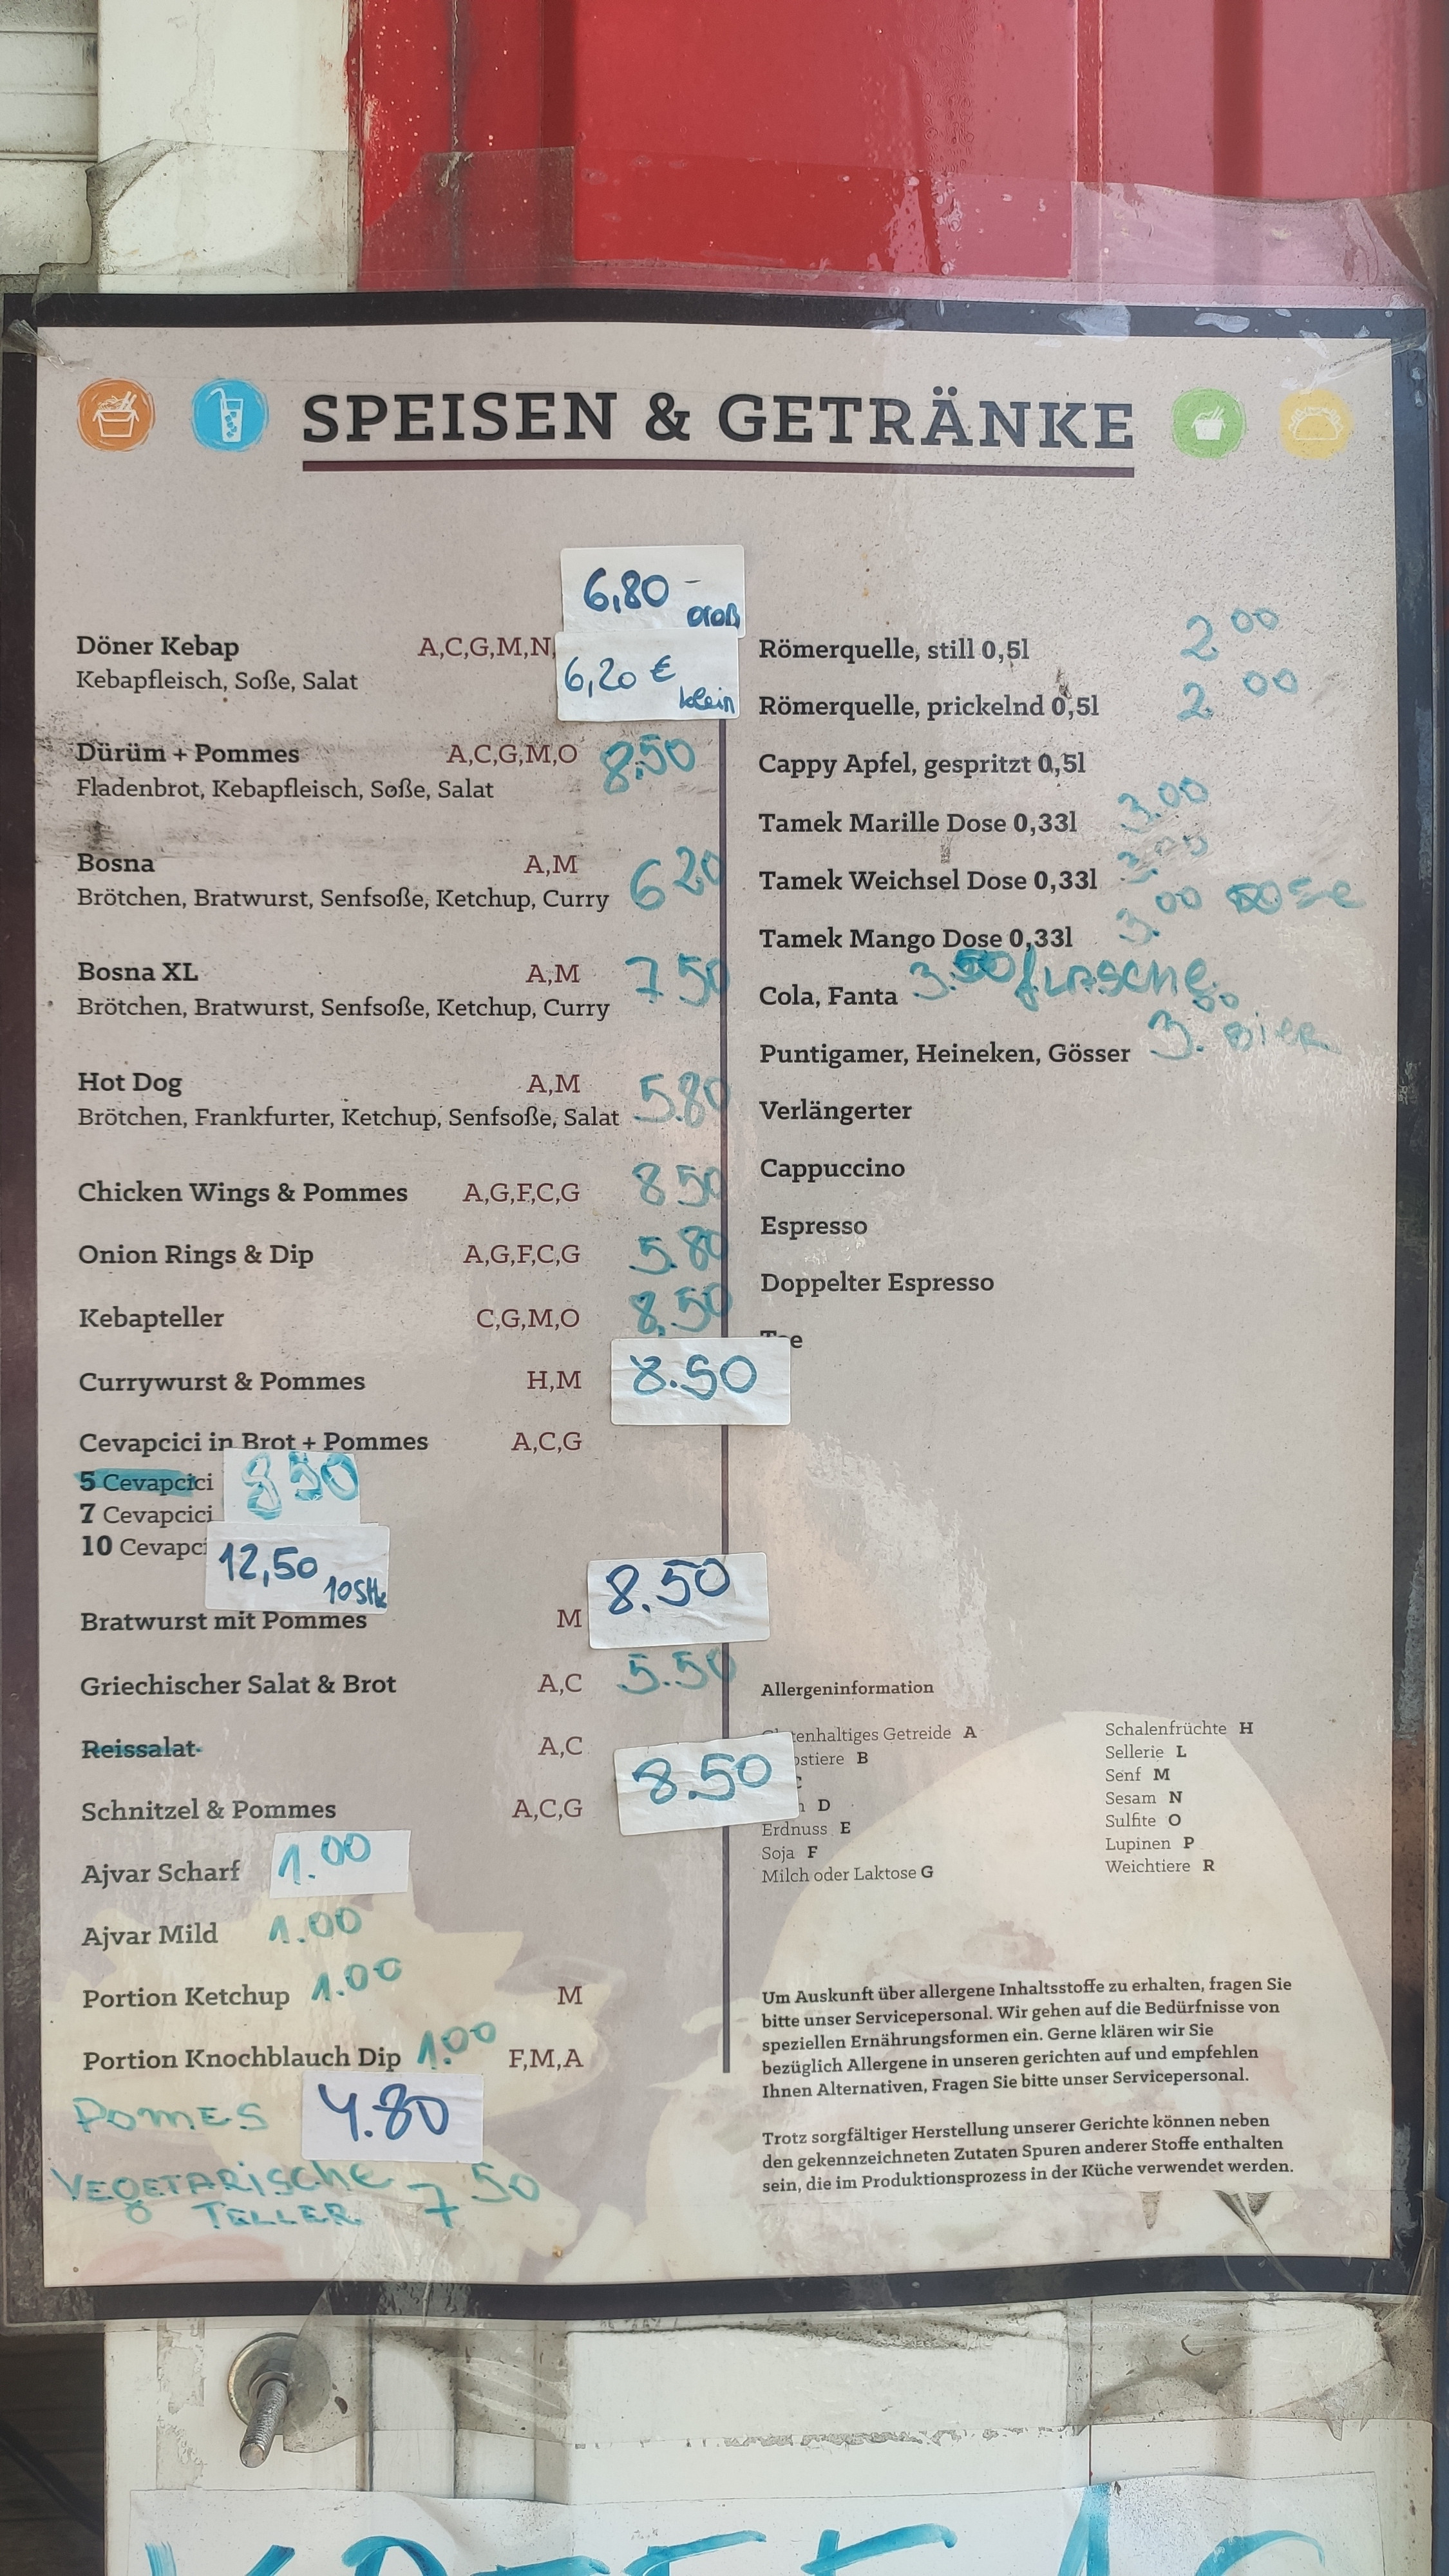 SPEISEN & GETRÄNKE
6,80 -
groß
Döner Kebap A,C,G,M,N,
Kebapfleisch, Soße, Salat
6,20 €
klein
Dürüm + Pommes A,C,G,M,O 8,50
Fladenbrot, Kebapfleisch, Soße, Salat
Bosna A,M 6 20
Brötchen, Bratwurst, Senfsoße, Ketchup, Curry
Bosna XL A,M 7 50
Brötchen, Bratwurst, Senfsoße, Ketchup, Curry
Hot Dog A,M 5.80
Brötchen, Frankfurter, Ketchup, Senfsoße, Salat
Chicken Wings & Pommes A,G,F,C,G 8 50
Onion Rings & Dip A,G,F,C,G 5.80
Kebapteller C,G,M,O 8,50
Currywurst & Pommes H,M 8.50
Cevapcici in Brot + Pommes A,C,G
5 Cevapcici
7 Cevapcici 8 50
10 Cevapci
12,50 10Stk
Bratwurst mit Pommes M 8.50
Griechischer Salat & Brot A,C 5.50
Reissalat A,C
Schnitzel & Pommes A,C,G 8.50
Ajvar Scharf 1.00
Ajvar Mild 1.00
Portion Ketchup 1.00 M
Portion Knochblauch Dip 1.00 F,M,A
POMES 4.80
VEGETARISCHE 7 50
TELLER
Römerquelle, still 0,5l 2 00
Römerquelle, prickelnd 0,5l 2 00
Cappy Apfel, gespritzt 0,5l
Tamek Marille Dose 0,33l 3.00
Tamek Weichsel Dose 0,33l 3.00
Tamek Mango Dose 0,33l 3.00 DOSE
Cola, Fanta 3.50 fLASCHE
Puntigamer, Heineken, Gösser 3.00 BIER
Verlängerter
Cappuccino
Espresso
Doppelter Espresso
Tee
Allergeninformation
tenhaltiges Getreide A
stiere B
C
D
Erdnuss E
Soja F
Milch oder Laktose G
Schalenfrüchte H
Sellerie L
Senf M
Sesam N
Sulfite O
Lupinen P
Weichtiere R
Um Auskunft über allergene Inhaltsstoffe zu erhalten, fragen Sie
bitte unser Servicepersonal. Wir gehen auf die Bedürfnisse von
speziellen Ernährungsformen ein. Gerne klären wir Sie
bezüglich Allergene in unseren gerichten auf und empfehlen
Ihnen Alternativen, Fragen Sie bitte unser Servicepersonal.
Trotz sorgfältiger Herstellung unserer Gerichte können neben
den gekennzeichneten Zutaten Spuren anderer Stoffe enthalten
sein, die im Produktionsprozess in der Küche verwendet werden.